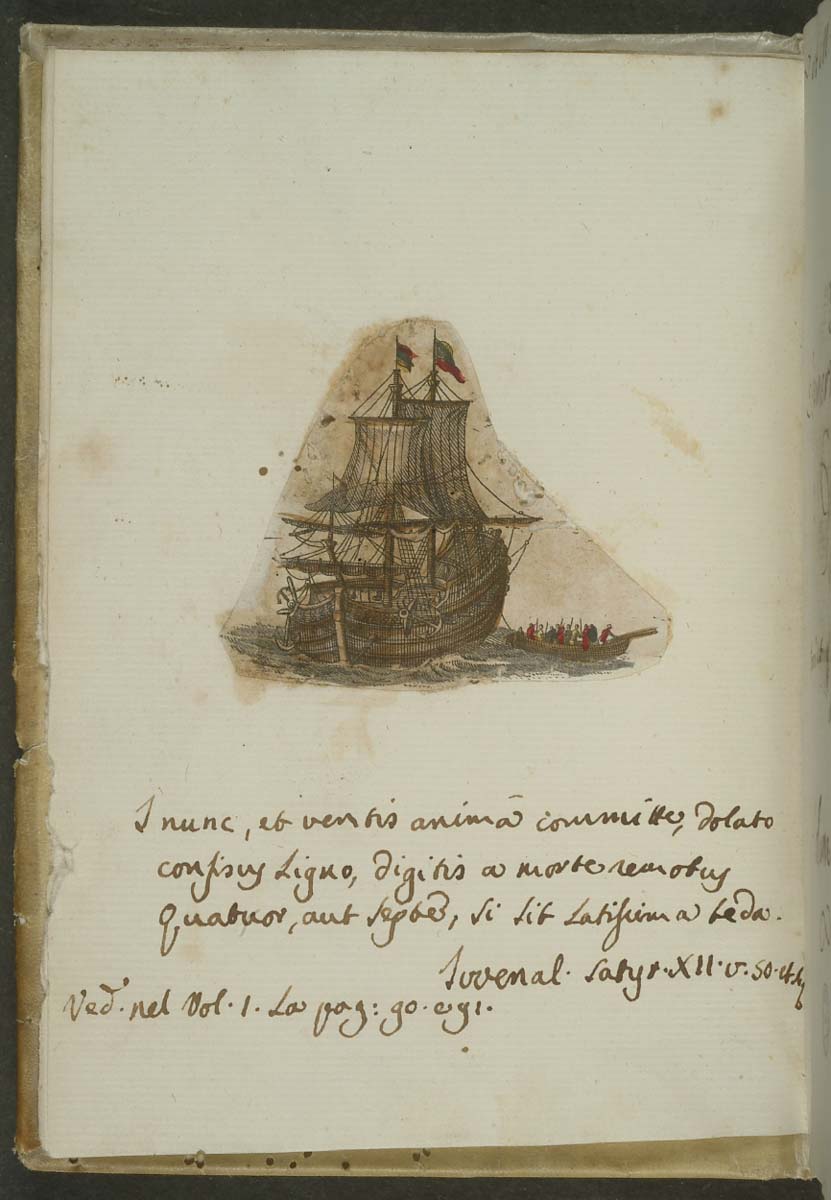 I nunc, et ventis animā committe, dolato
confisus Ligno, digitis a morte remotus
Quatuor, aut septē, si sit Latissima teda.
Iuvenal. Satyr. XII. v. 50. et
Ved. nel Vol. 1. La pag: 90. e 91.